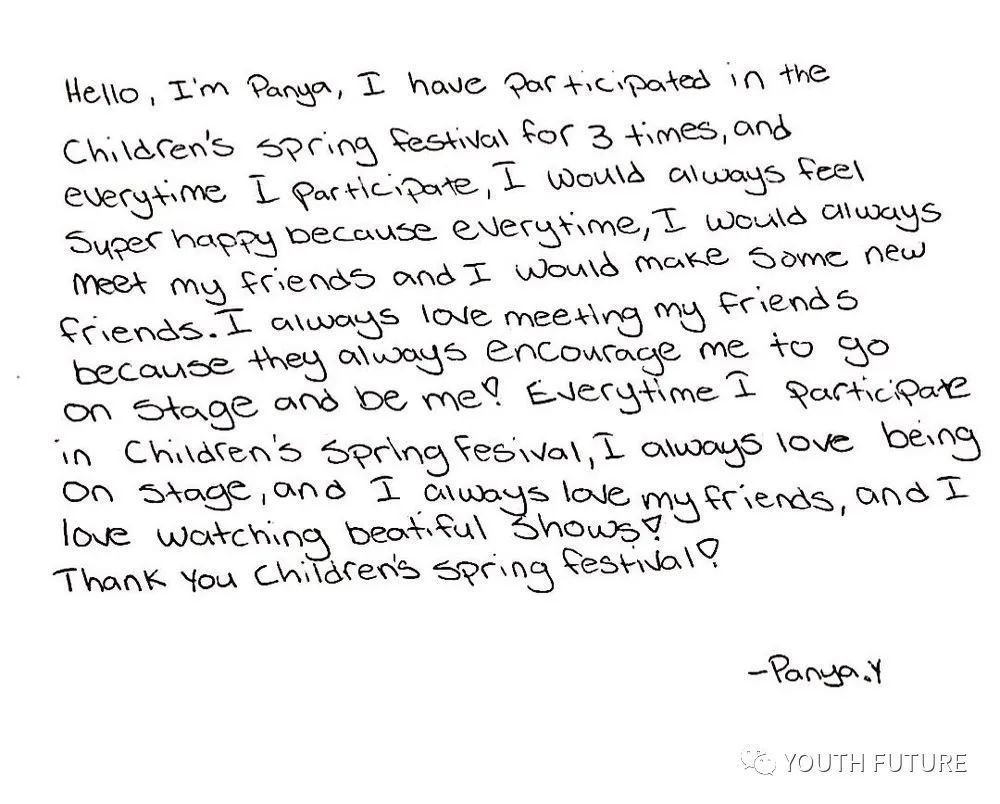 Hello, I'm Panya, I have participated in the
Children's spring festival for 3 times, and
everytime I participate, I would always feel
super happy because everytime, I would always
meet my friends and I would make some new
friends. I always love meeting my friends
because they always encourage me to go
on stage and be me! Everytime I participate
in Children's spring fesival, I always love being
on stage, and I always love my friends, and I
love watching beatiful shows!
Thank you Children's spring festival!
-Panya.Y
YOUTH FUTURE